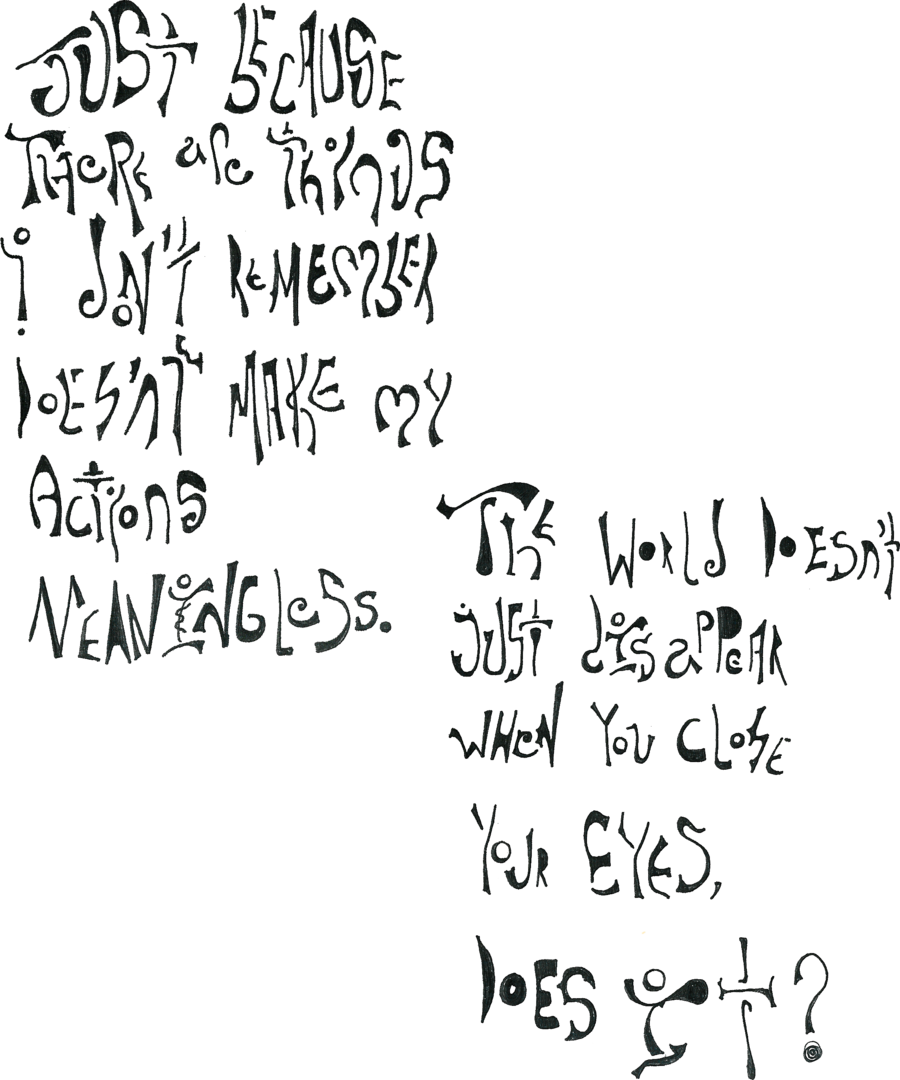 JUST BECAUSE
THERE are THiNGS
i DON'T REMEMBER
DOESN'T MAKE MY
ACTiONS
MEANiNGLeSS.
THE WORLD DOESn't
JUST DiSaPPEAR
WHEN YOU CLOSE
YOUR EYES,
DOES iT?